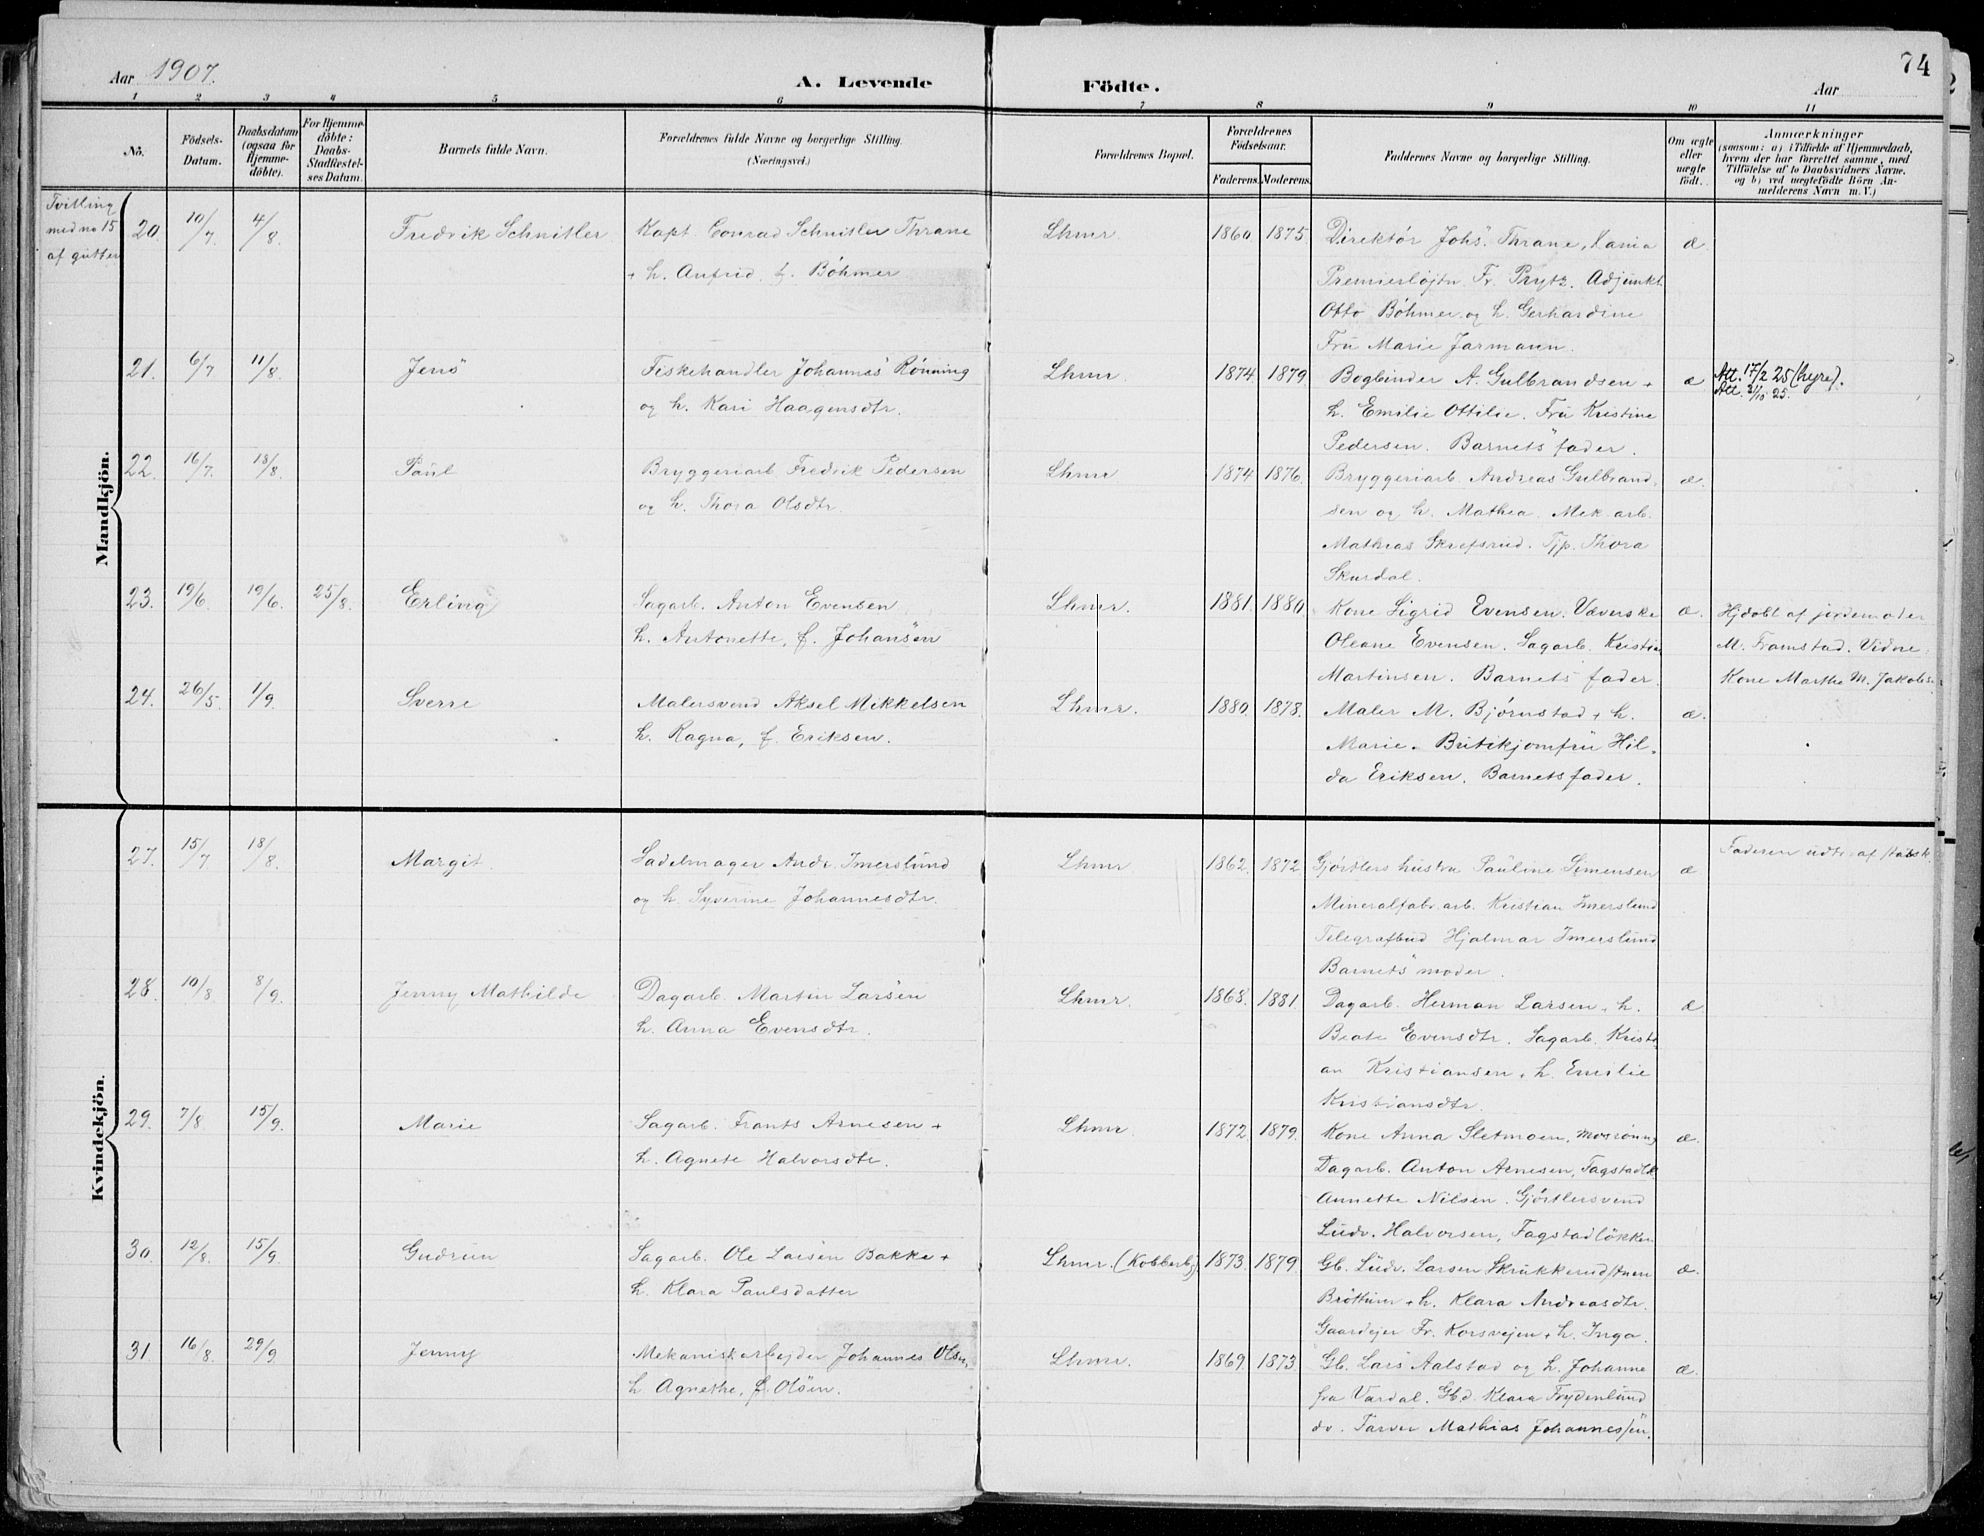 74
Aar 1907.
A. Levende Födte.
Aar
1 2 3 4 5 6 7 8 9 10 11
No.
Födsels-Datum.
Daabsdatum (ogsaa for Hjemme-döbte).
For Hjemme-döbte: Daabs-Stadfæstel-ses Datum.
Barnets fulde Navn.
Forældrenes fulde Navne og borgerlige Stilling. (Næringsvei.)
Forældrenes Bopæl.
Forældrenes Födselsaar.
Faderens. Moderens.
Faddernes Navne og borgerlige Stilling.
Om ægte eller uægte födt.
Anmærkninger
(saasom: a) i Tilfælde af Hjemmedaab, hvem der har forrettet samme, med Tilföielse af to Daabsvidners Navne. og b) ved uægtefödte Börn An-melderens Navn m. V.)
Mandkjön.
Tvilling
med no 15
af gutter
20. 10/7 4/8 Fredrik Schnitler Kapt. Conrad Schnitler Thrane Lhmr. 1860 1875 Direktør Johs. Thrane, Kania æ
+ h. Anfrid, f. Bøhmer Premierløjtn Fr. Prytz. Adjunkt
Otto Bøhmer og h. Gerhardine
Fru Marie Jarmann.
21. 6/7 11/8 Jens Fiskehandler Johannes Rønning Lhmr. 1874 1879 Bogbinder A. Gulbrandsen + æ Att. 17/2 25 (hyre).
og h. Kari Haagensdtr. h. Emilie Ottilie. Fru Kristine Att. 3/10 25.
Pedersen. Barnets fader.
22. 16/7. 18/8. Paul Bryggeriarb Fredrik Pedersen Lhmr 1874 1876. Bryggeriarb. Andreas Gulbrand- æ.
og h. Thora Olsdtr. sen og h. Mathea. Mek. arb.
Mathias Skrefsrud. Tjp. Thora
Skurdal.
23. 19/6. 19/6. 25/8. Erling Sagarb. Anton Evensen Lhmr. 1881. 1880. Kone Sigrid Evensen. Væverske æ. Hjdøbt af jordemoder
h. Antonette, f. Johansen Oleane Evensen. Sagarb. Kristian M. Framstad. Vidne:
Martinsen. Barnets fader. Kone Marthe M. Jakobsen
24. 26/5. 1/9. Sverre Malersvend Aksel Mikkelsen Lhmr. 1880. 1878. Maler M. Bjørnstad + h. æ.
h. Ragna, f. Eriksen. Marie. Butikjomfru Hil-
da Eriksen. Barnets fader.
Kvindekjön.
27. 15/7 18/8. Margit. Sadelmager Andr. Imerslund Lhmr 1862. 1872. Gjørtlers hustru Pauline Simensen æ Faderen udtr. af statsk.
og h. Syverine Johannesdtr. Mineralfabr.arb. Kristian Imerslund
Telegrafbud Hjalmar Imerslund
Barnets moder.
28. 10/8 8/9. Jenny Mathilde Dagarb. Martin Larsen Lhmr. 1868. 1881. Dagarb. Herman Larsen, h. æ
h. Anna Evensdtr. Beate Evensdtr. Sagarb. Kristi-
an Kristiansen + h. Emilie
Kristiansdtr.
29. 7/8 15/9. Marie Sagarb. Frants Arnesen + Lhmr. 1872. 1879. Kone Anna Sletmoen, Mosrønning æ.
h. Agnete Halvorsdtr. Dagarb. Anton Arnesen, Fagstadlk.
Annette Nilsen. Gjørtlersvend
Ludv. Halvorsen, Fagstadløkken
30. 12/8. 15/9. Gudrun Sagarb. Ole Larsen Bakke + Lhmr. (Kobberb.) 1873. 1879. Gb. Ludv. Larsen Skrukkerudstuen æ.
h. Klara Paulsdatter Brøttum + h. Klara Andreasdtr.
Gaardejer Fr. Korsvejen + h. Inga.
31. 16/8. 29/9. Jenny Mekaniskarbejder Johannes Olsen, Lhmr. 1869. 1873. Gb. Lars Aalstad og h. Johanne æ.
h. Agnethe, f. Olsen. fra Vardal. Gbd. Klara Frydenlund
do. Farver Mathias Johannessen.